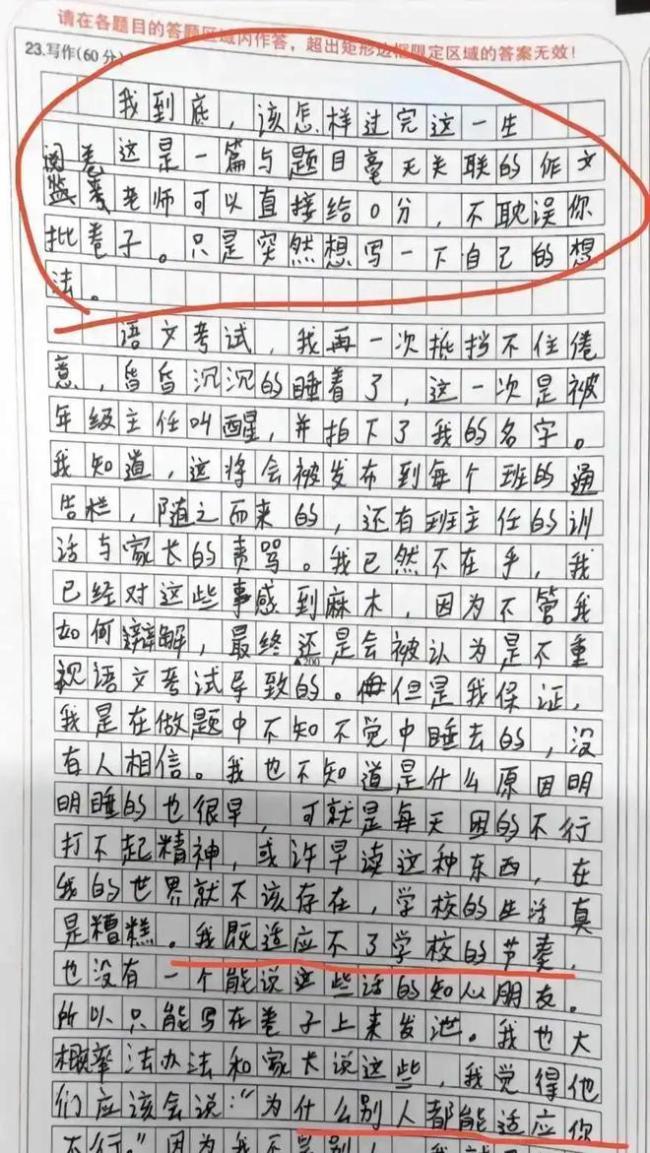 请在各题目的答题区域内作答，超出矩形边框限定区域的答案无效！
23.写作(60分)
我到底，该怎样过完这一生
阅卷这是一篇与题目毫无关联的作文
老师可以直接给0分，不耽误你
批卷子。只是突然想写一下自己的想
法。
语文考试，我再一次抵挡不住倦
意，昏昏沉沉的睡着了，这一次是被
年级主任叫醒，并拍下了我的名字。
我知道，这将会被发布到每个班的通
告栏，随之而来的，还有班主任的训
话与家长的责骂。我已然不在乎，我
已经对这些事感到麻木，因为不管我
如何辩解，最终还是会被认为是不重
▲200
视语文考试导致的。但是我保证，
我是在做题中不知不觉中睡去的，没
有人相信。我也不知道是什么原因明
明睡的也很早，可就是每天困的不行
打不起精神，或许早读这种东西，在
我的世界就不该存在，学校的生活真
是糟糕。我既适应不了学校的节奏，
也没有一个能说这些话的知心朋友。
所以只能写在卷子上来发泄。我也大
概率法办法和家长说这些，我觉得他
们应该会说：“为什么别人都能适应你
不行。”因为我不是别人